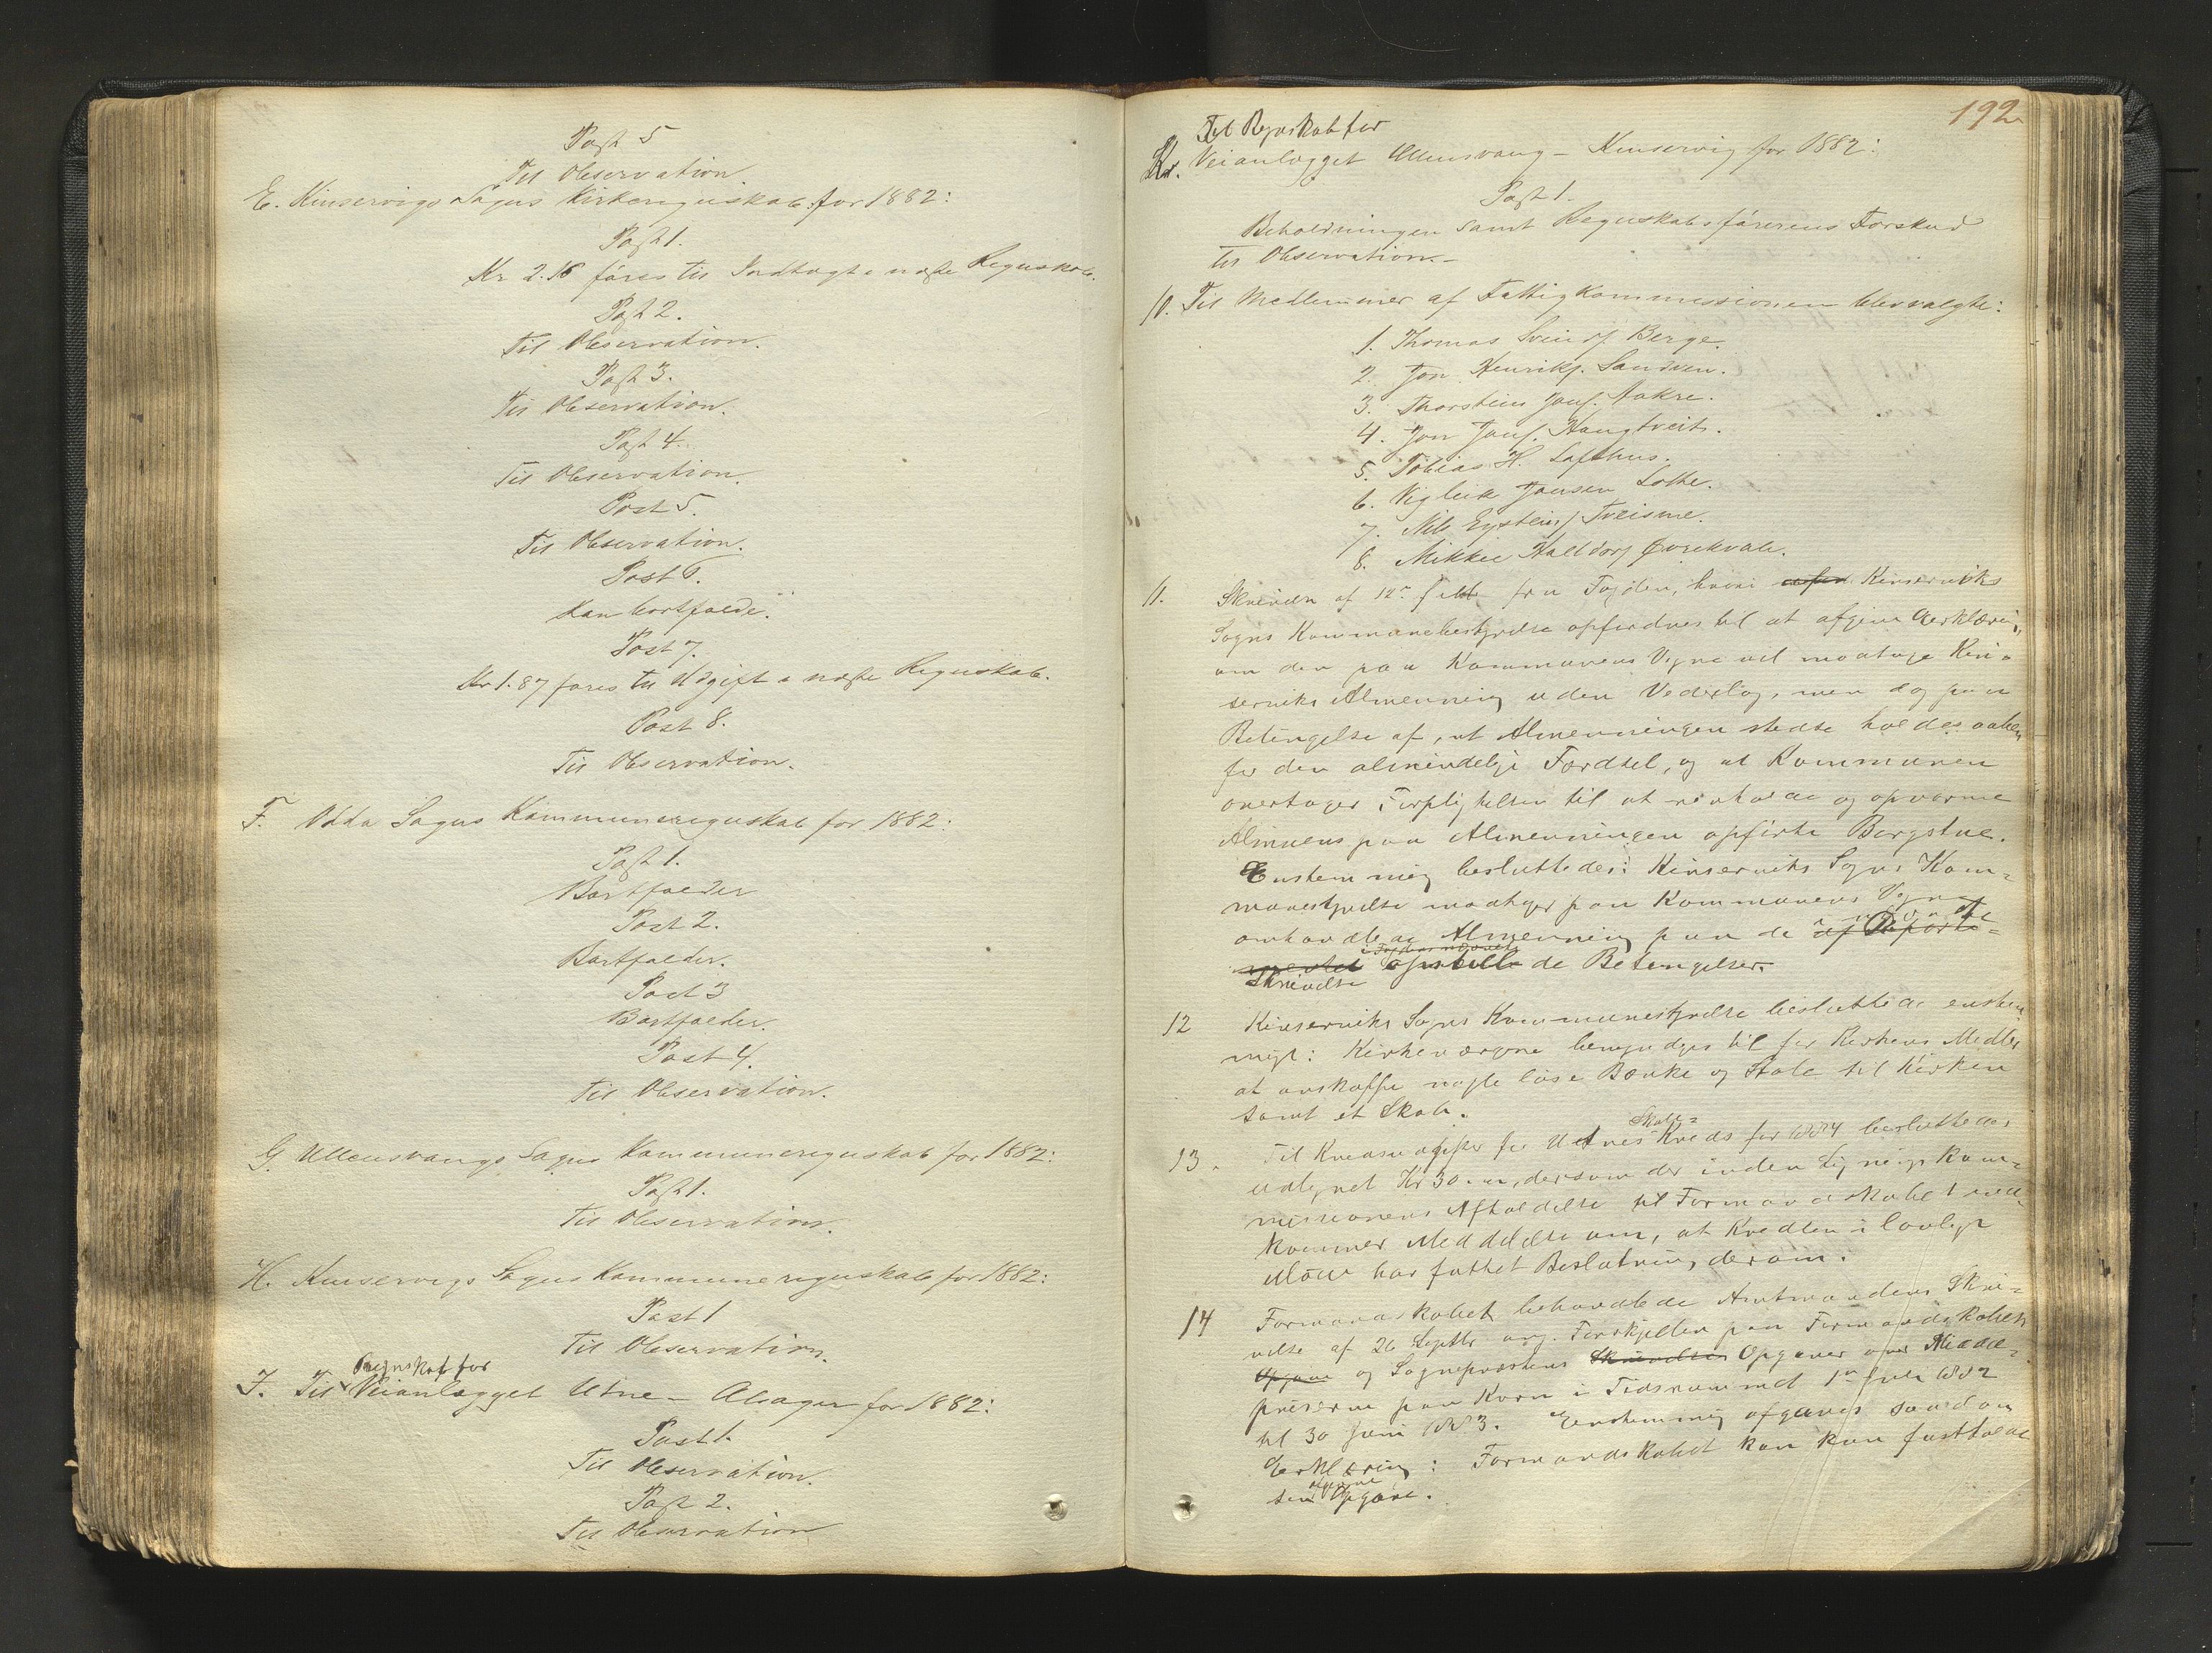 Post 5
Til Observation
E. Kinservigs Sogns Kirkeregnskab for 1882:
Post 1.
Kr 2.16 føres til Indtægt i næste Regnskab.
Post 2.
Til Observation.
Post 3.
Til Observation.
Post 4.
Til Observation.
Post 5.
Til Observation.
Post 6.
Kan bortfalde.
Post 7.
Kr 1.87 føres til Udgift i næste Regnskab.
Post 8.
Til Observation.
F. Odda Sogns Kommuneregnskab for 1882:
Post 1.
Bortfalder
Post 2.
Bortfalder.
Post 3
Bortfalder.
Post 4.
Til Observation.
G. Ullensvangs Sogns Kommuneregnskab for 1882:
Post 1.
Til Observation.
H. Kinservigs Sogns Kommuneregnskab for 1882:
Post 1
Til Observation.
Regnskab for
J. Til Veianlægget Utne - Alsager for 1882:
Post 1.
Til Observation.
Post 2.
Til Observation
192
Til Regnskab for
Veianlægget Ullensvang - Kinservig for 1882:
Post 1.
Beholdningen samt Regnskabsførerens Forskud
til Observation.-
10. Til Medlemmer af Fattigkommissionen blev valgte:
1. Thomas Svends. Berge.
2. Jon Henriks. Sandven.
3. Thorstein Jons. Aakre.
4. Jon Jons. Haugtveit.
5. Tobias H. Lofthus.
6. Vigleik Jonsen Lothe.
7. Nils Eysteins. Tveisme.
8. Mikkel Halldors.
11. Skrivelse af 12te fra Fogden, hvori Kinserviks
Sogns Kommunebestyrelse opfordres til at afgive Erklæring,
om den paa Kommunens Vegne vil modtage Kin-
serviks Almenning uden Vederlag, men dog paa
Betingelse af, at Almenningen stedse holdes aaben
for den almindelige Færdsel, og at Kommunen
overtager Forpligtelsen til at renholde og opvarme
Almuens paa Almenningen opførte Borgstue.
Enstemmig besluttedes: Kinserviks Sogns Kom-
munestyrelse modtager paa Kommunens Vegne
omhandlede Almenning paa de af Departe-
mentet opstillede Betingelser.
Skrivelse
12 Kinserviks Sogns Kommunestyrelse besluttede enstem
migt: Kirkeværgerne bemyndiges til for Kirkens Midler
at anskaffe nogle løse Bænke og Stole til Kirken
samt et Skab.
Skole-
13. Til Kredsudgifter for Utnes Kreds for 1884 besluttedes
udlignet Kr 30.00, dersom der inden Ligningskom-
missionens Afholdelse til Formandskabet ind-
kommer Meddelelse om, at Kredsen i lovligt
Møde har fattet Beslutning derom.
14 Formandskabet behandlede Amtmandens Skri-
velse af 26 Septbr ang. Forskjellen paa Formandskabets
Opgave og Sogneprestens Skrivelse Opgaver over Middel-
priserne paa Korn i Tidsrummet 1ste Juli 1882
til 30 Juni 1883. Enstemmig afgaves saadan
Erklæring: Formandskabet kan kun fastholde
afgivne
sin Opgave.